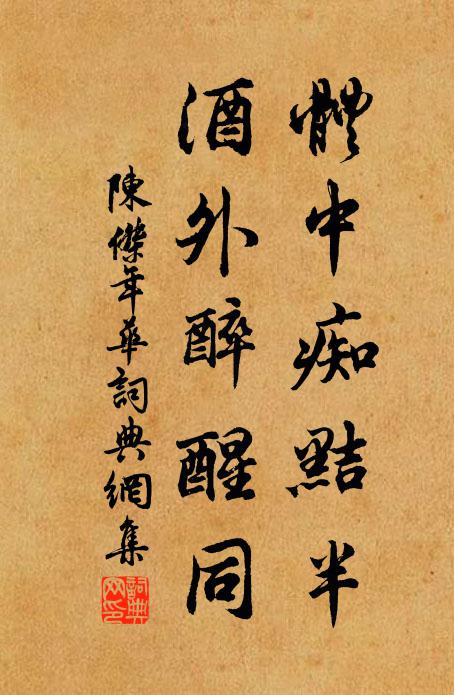 體中痴黠半
酒外醉醒同
陳傑年華詞典網集
詞典網印